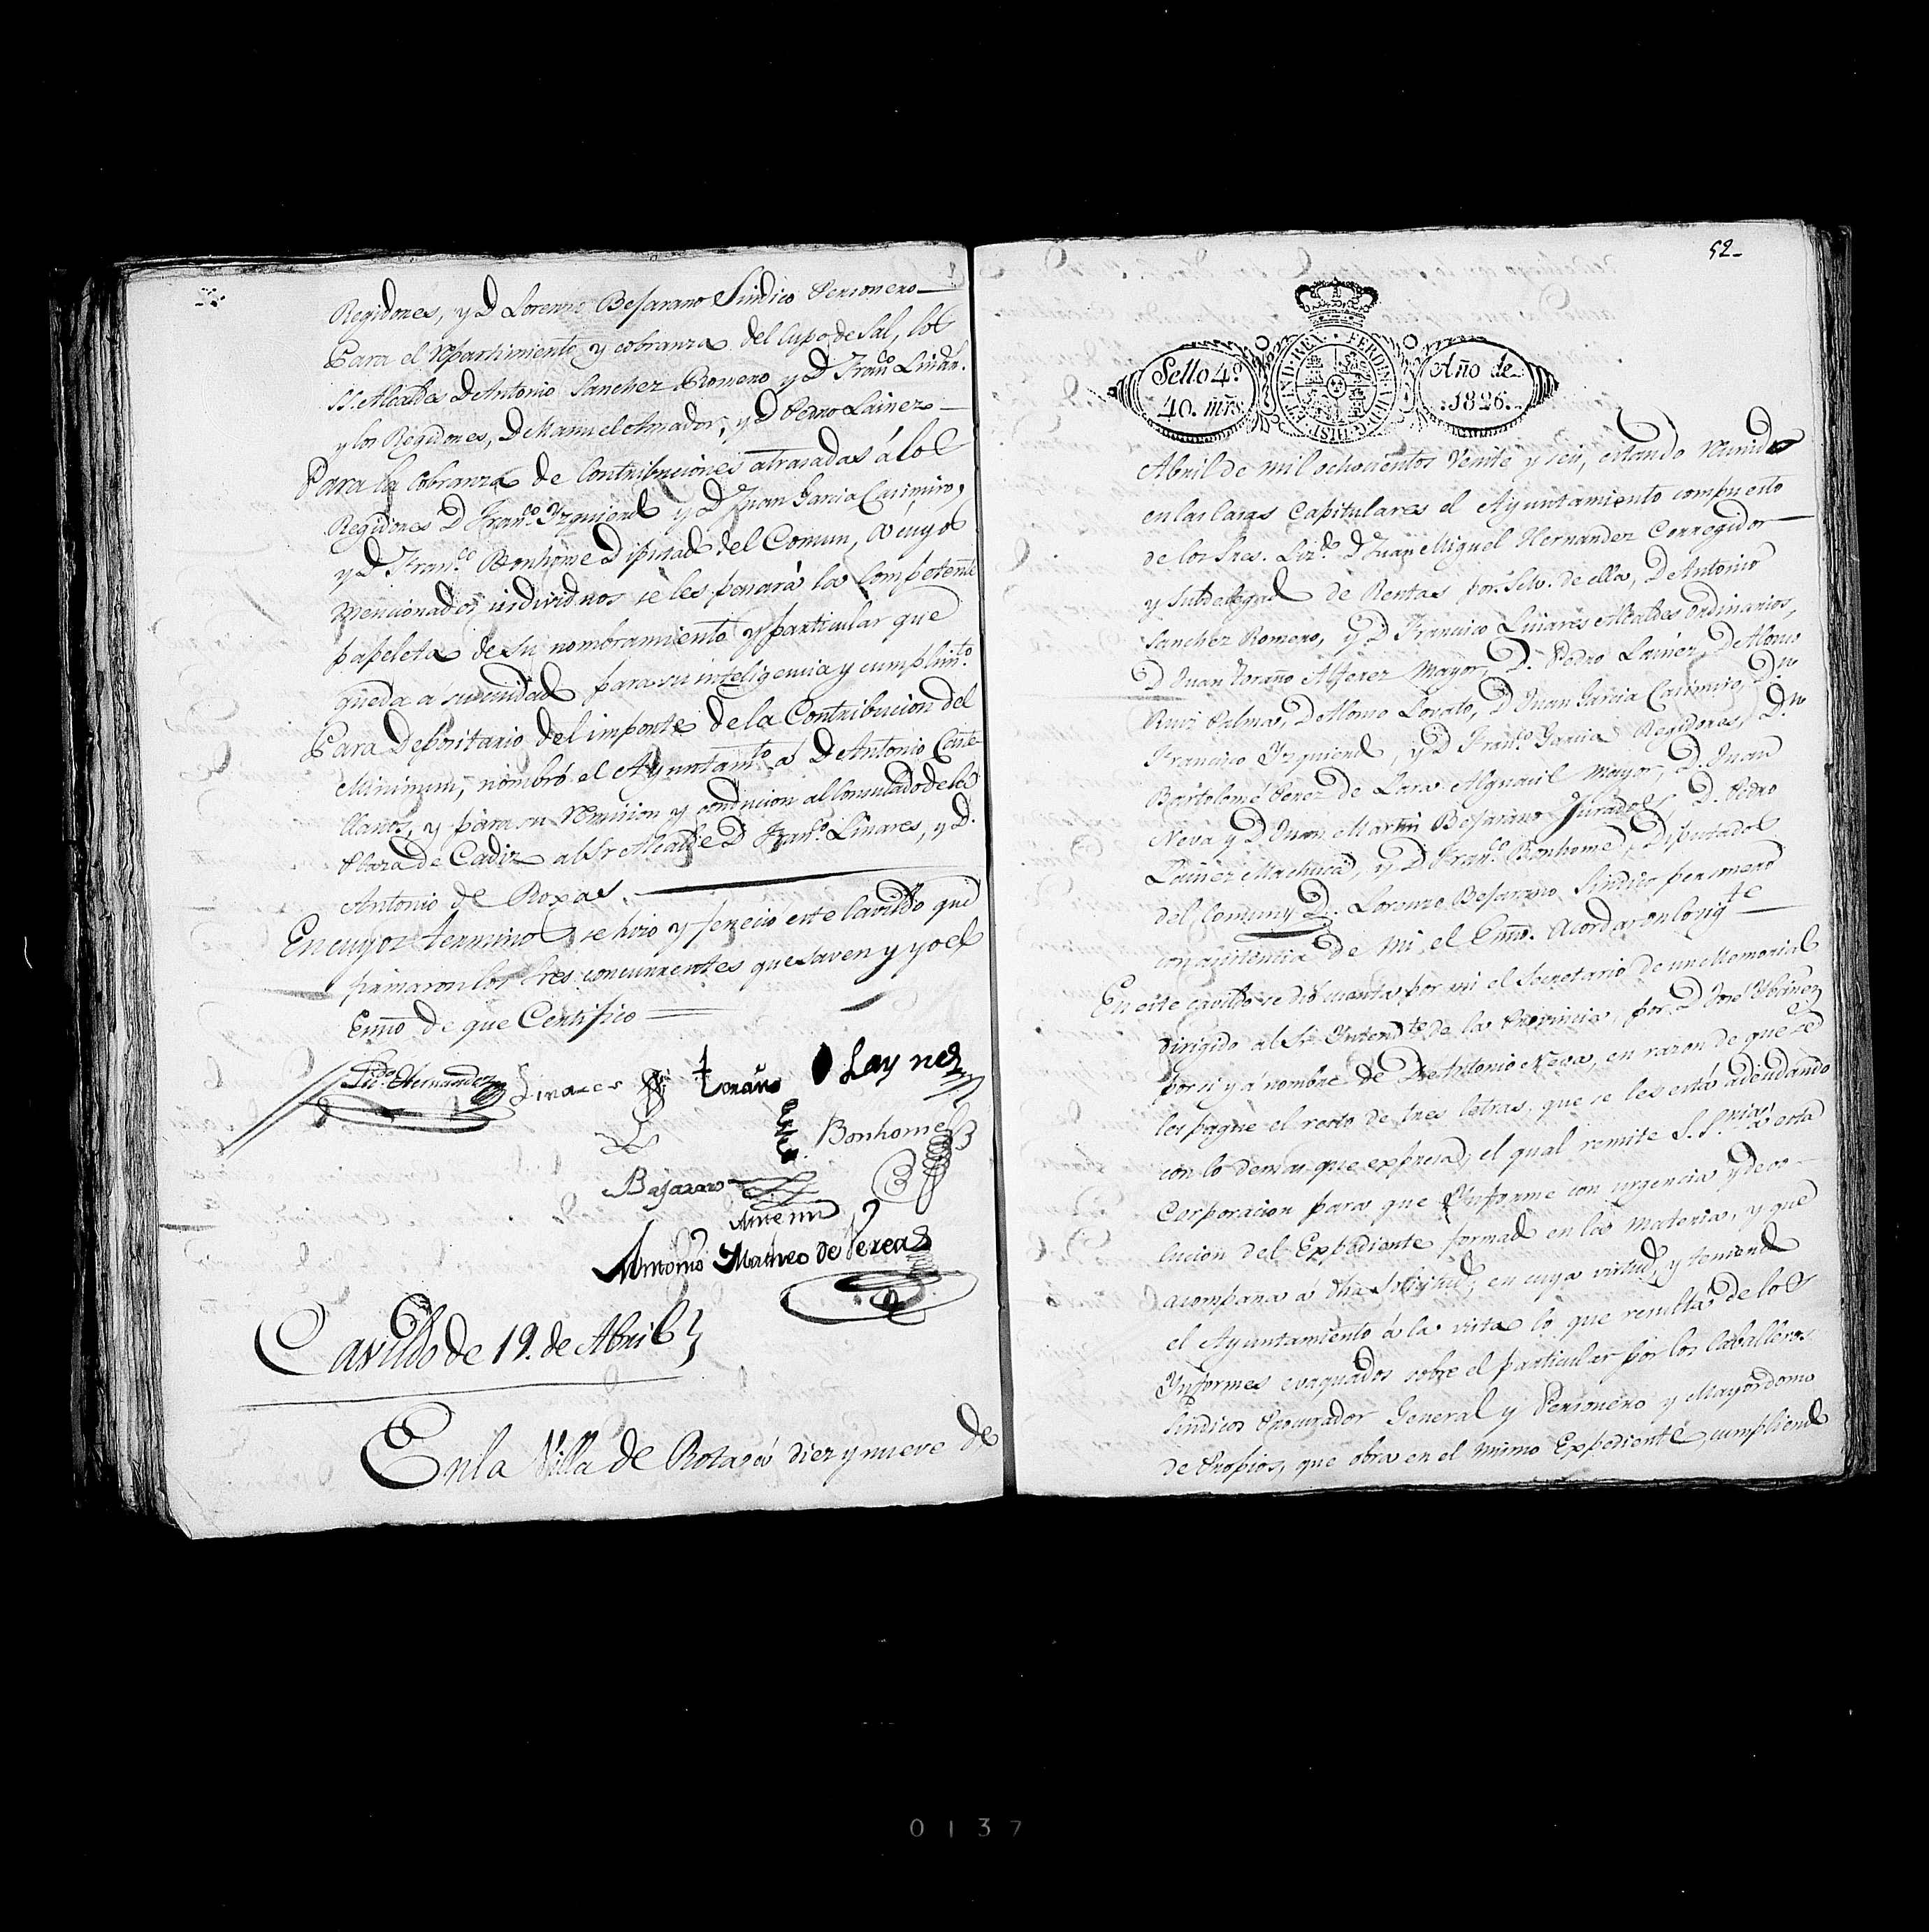 Regidores, y D Lorenzo Bejarano Sindico Personero
Para el repartimiento y cobranza del Cupo de Sal, los
SS. Alcaldes D Antonio Sanchez Romero y D Franco. Linars.
y los Regidores, D Manuel Amador, y D Pedro Lainez
Para la Cobranza de Contribuciones atrasadas á los
Regidores D Franco. Yzquierdo y D Juan Garcia Casimiro,
y D Franco. Bonhome Diputado del Comun, a cuyos
mencionados individuos se les pasará la competente
papeleta de su nombramiento y particular que
queda a su cuidado para su inteligencia y cumplimto.
Para Depositario del importe de la Contribucion del
Minimun, nombró el Ayuntamto. á D Antonio Caste-
llanos, y para su remision y conducion al Consulado de la
Plaza de Cadiz al Sr Alcalde D Franco. Linares, y D.
Antonio de Roxas.
En cuyos terminos se hizo y feneció este Cavildo que
firmaron los Sres concurrentes que saven y yo el
Ennõ de que Certifico
Licdo. Hernandez
Linares
Toraño
Laynez
Bonhome
Bejarano
Ante mi
Antonio Matheo de Perea
Cavildo de 19. de Abril
En la Villa de Rota á diez y nueve de
52
FERDIN. VII. D. G. HISP. ET IND. REX
Sello 4º.
40. mrs.
Año de
1826.
Abril de mil ochocientos Veinte y seis, estando reunido
en las Casas Capitulares el Ayuntamiento compuesto
de los Sres. Lizdo. D Juan Miguel Hernandez Corregidor
y Subdelegado de Rentas por S.M. de ella, D Antonio
Sanchez Romero, y D Francisco Linares Alcaldes ordinarios,
D Juan Toraño Alferez Mayor, D. Pedro Lainez, D Alonso
Ruiz Palma, D Alonso Lovato, D Juan Garcia Casimiro, Dn
Francisco Yzquierdo, y D Franco. Garcia Regidores, Dn
Bartolomé Perez de Lara Alguacil Mayor, D. Juan
Neva y D Juan Martin Bejarano Jurados, D. Pedro
Lainez Machuca, y D Franco. Bonhome, Diputados
del Comun y D. Lorenzo Bejarano Sindico personero
con asistencia de mi el Ennõ. Acordaron lo sigte
En este cavildo se dió cuenta por mi el Secretario de un Memorial
dirigido al Sr. Yntendte de la Provincia, por D José Ybañez
por si y á nombre de D Antonio Neva, en razon de que se
les pague el resto de tres letras, que se les está adeudando
con lo demas que expresa, el qual remite S.S. á esta
Corporacion para que Ynforme con urgencia y devo-
lucion del Expediente formado en la materia, y que
acompaña á dha solizitud; en cuya virtud, y teniendo
el Ayuntamiento á la vista lo que resulta de los
Ynformes evaquados sobre el particular por los Caballeros
Sindicos Procurador General y Personero y Mayordomo
de Propios, que obra en el mismo Expediente, cumpliendo
0137